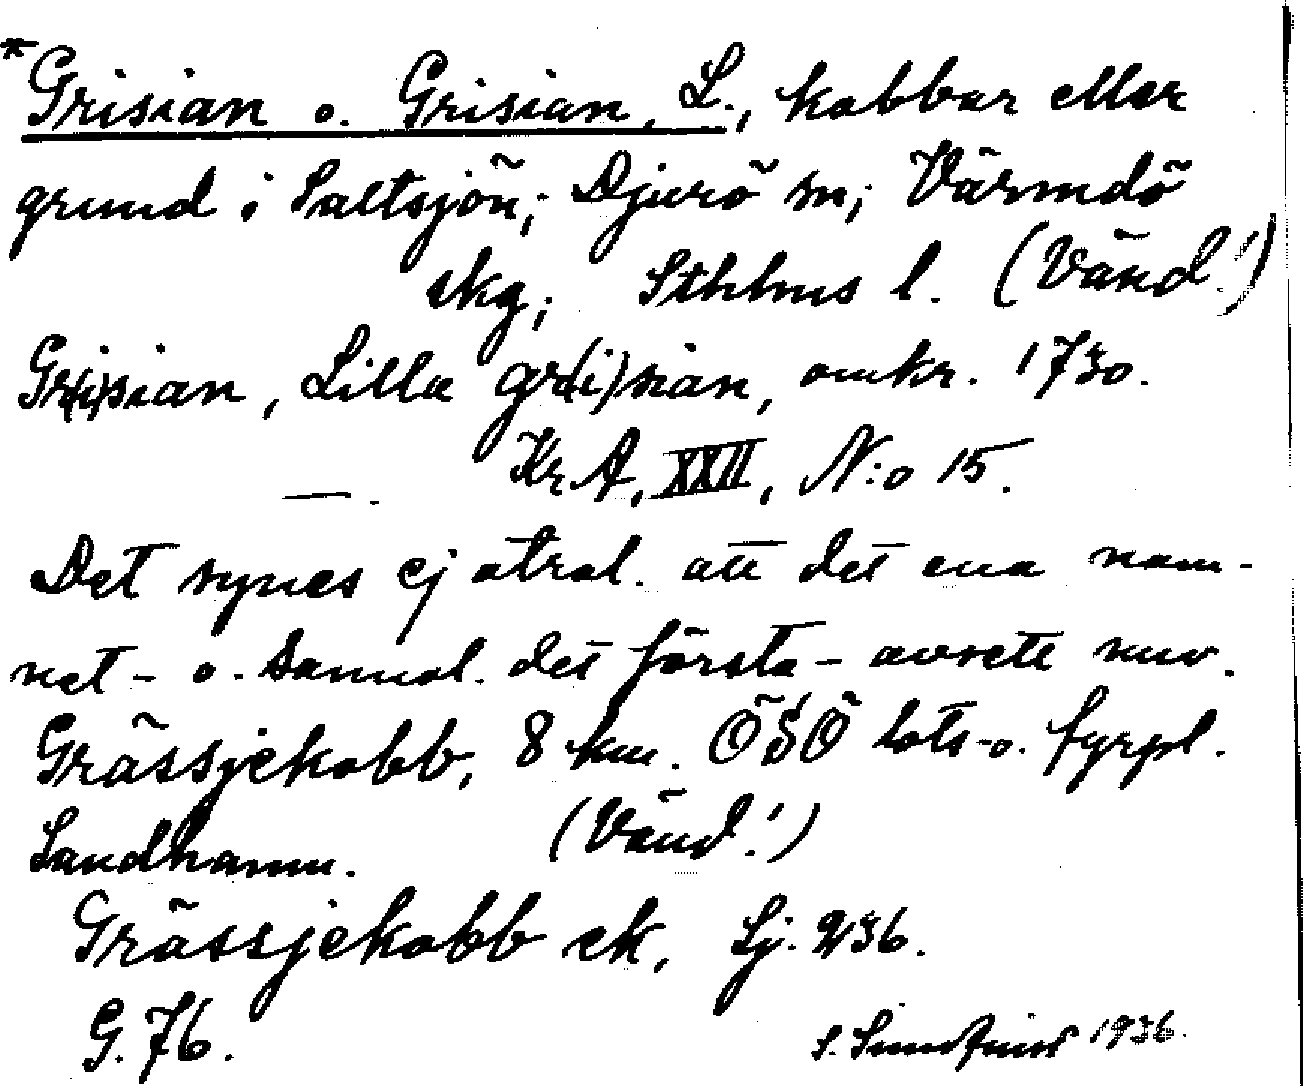 *Grisian o. Grisian, L., kobbar eller
grund i Saltsjön; Djurö sn; Värmdö
skg; Sthlms l. (Vänd!)
Gr(i)sian, Lilla gr(i)sian, omkr. 1730.
— . KrA, XXII, N:o 15.
Det synes ej otrol. att det ena nam-
net - o. sannol. det första - avsett nuv.
Grässjekobb, 8 km. ÖSÖ lots- o. fyrpl.
Sandhamn. (Vänd!)
Grässjekobb ek, Sj. 236.
G. 76. 1936.